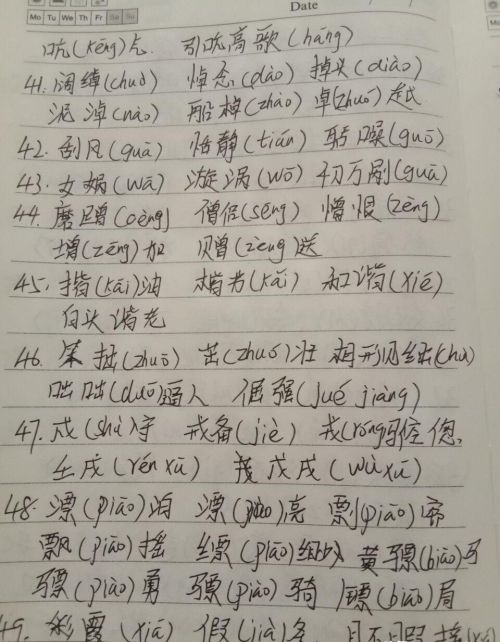 Date
Mo Tu We Th Fr Sa Su
吭(kēng)气 引吭高歌(háng)
41.阔绰(chuò) 悼念(dào) 掉头(diào)
泥淖(nào) 船棹(zhào) 卓(zhuó)越
42.刮风(guā) 恬静(tián) 聒噪(guō)
43.女娲(wā) 漩涡(wō) 千刀万剐(guǎ)
44.磨蹭(cèng) 僧侣(sēng) 憎恨(zēng)
增(zēng)加 赠(zèng)送
45.揩(kāi)油 楷书(kǎi) 和谐(xié)
白头谐老
46.笨拙(zhuō) 茁(zhuó)壮 相形见绌(chù)
咄咄(duō)逼人 倔强(jué jiàng)
47.戍(shù)守 戒备(jiè) 戎(róng)马倥偬
壬戌(rén xū) 戊戌(wù xū)
48.漂(piāo)泊 漂(piào)亮 剽(piāo)窃
飘(piāo)摇 缥(piāo)缈 黄骠(biāo)马
骠(piào)勇 骠(piào)骑 镖(biāo)局
49.彩霞(xiá) 假(jià)条